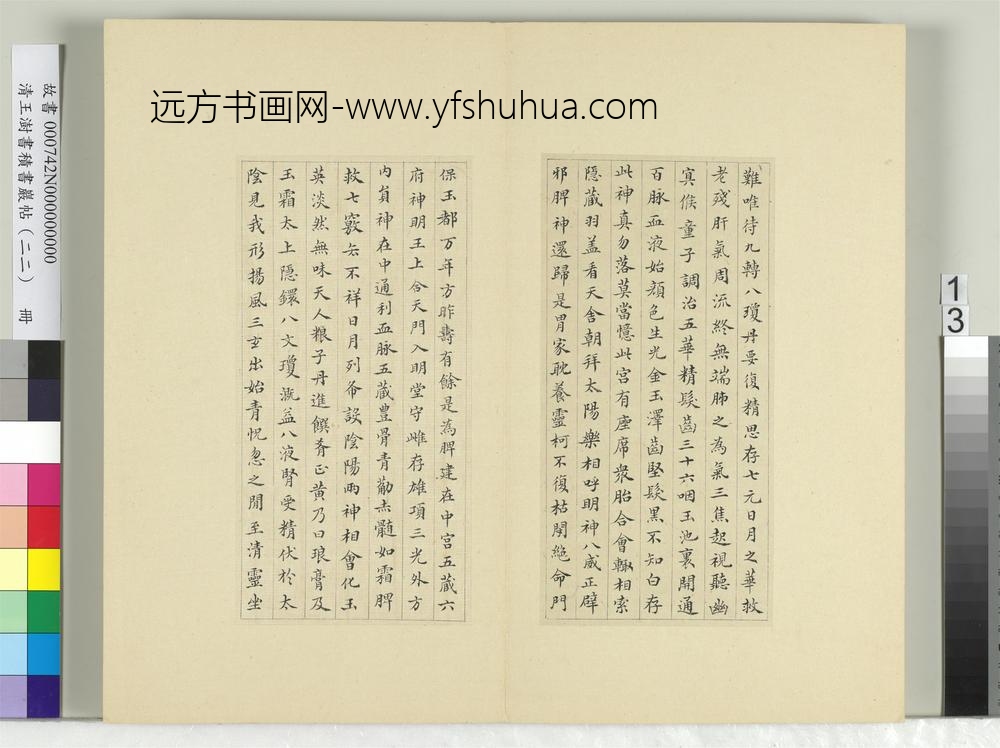 远方书画网-www.yfshuhua.com
故書 000742N000000000
清王澍書積書巖帖（二二） 冊
1
3
難唯待九轉八瓊丹要復精思存七元日月之華救
老殘肝氣周流終無端肺之為氣三焦起視聽幽
冥候童子調治五華精髮齒三十六咽玉池裏開通
百脉血液始顏色生光金玉澤齒堅髮黑不知白存
此神真勿落莫當憶此宮有座席衆胎合會轉相索
隱藏羽盖看天舍朝拜太陽樂相呼明神八威正辟
邪脾神還歸是胃家耽養靈柯不復枯閉絶命門
保玉都万年方昨壽有餘是為脾建在中宮五藏六
府神明王上合天門入明堂守雌存雄項三光外方
内員神在中通利血脉五藏豊骨青筋赤髓如霜脾
救七竅去不祥日月列布設陰陽兩神相會化玉
英淡然無味天人粮子丹進饌肴正黄乃曰琅膏及
玉霜太上隱鐶八文瓊溉益八液腎受精伏於太
陰見我形揚風三玄出始青怳忽之閒至清靈坐